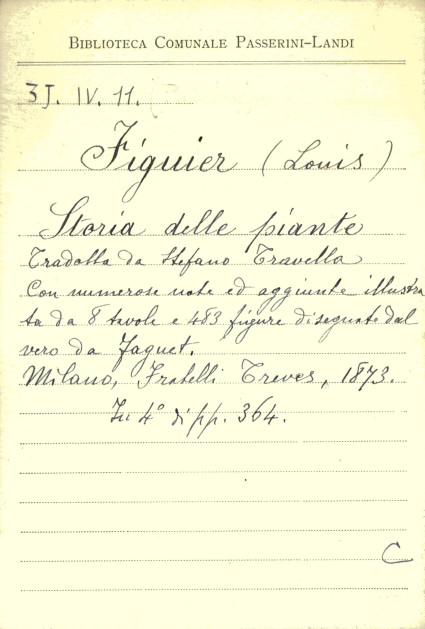 BIBLIOTECA COMUNALE PASSERINI-LANDI
3J. IV. 11.
Figuier (Louis)
Storia delle piante
Tradotta da Stefano Travella
Con numerose note ed aggiunte illustra
ta da 8 tavole e 483 figure disegnate dal
vero da Faguet.
Milano, Fratelli Treves, 1873.
In 4° di pp. 364.
C